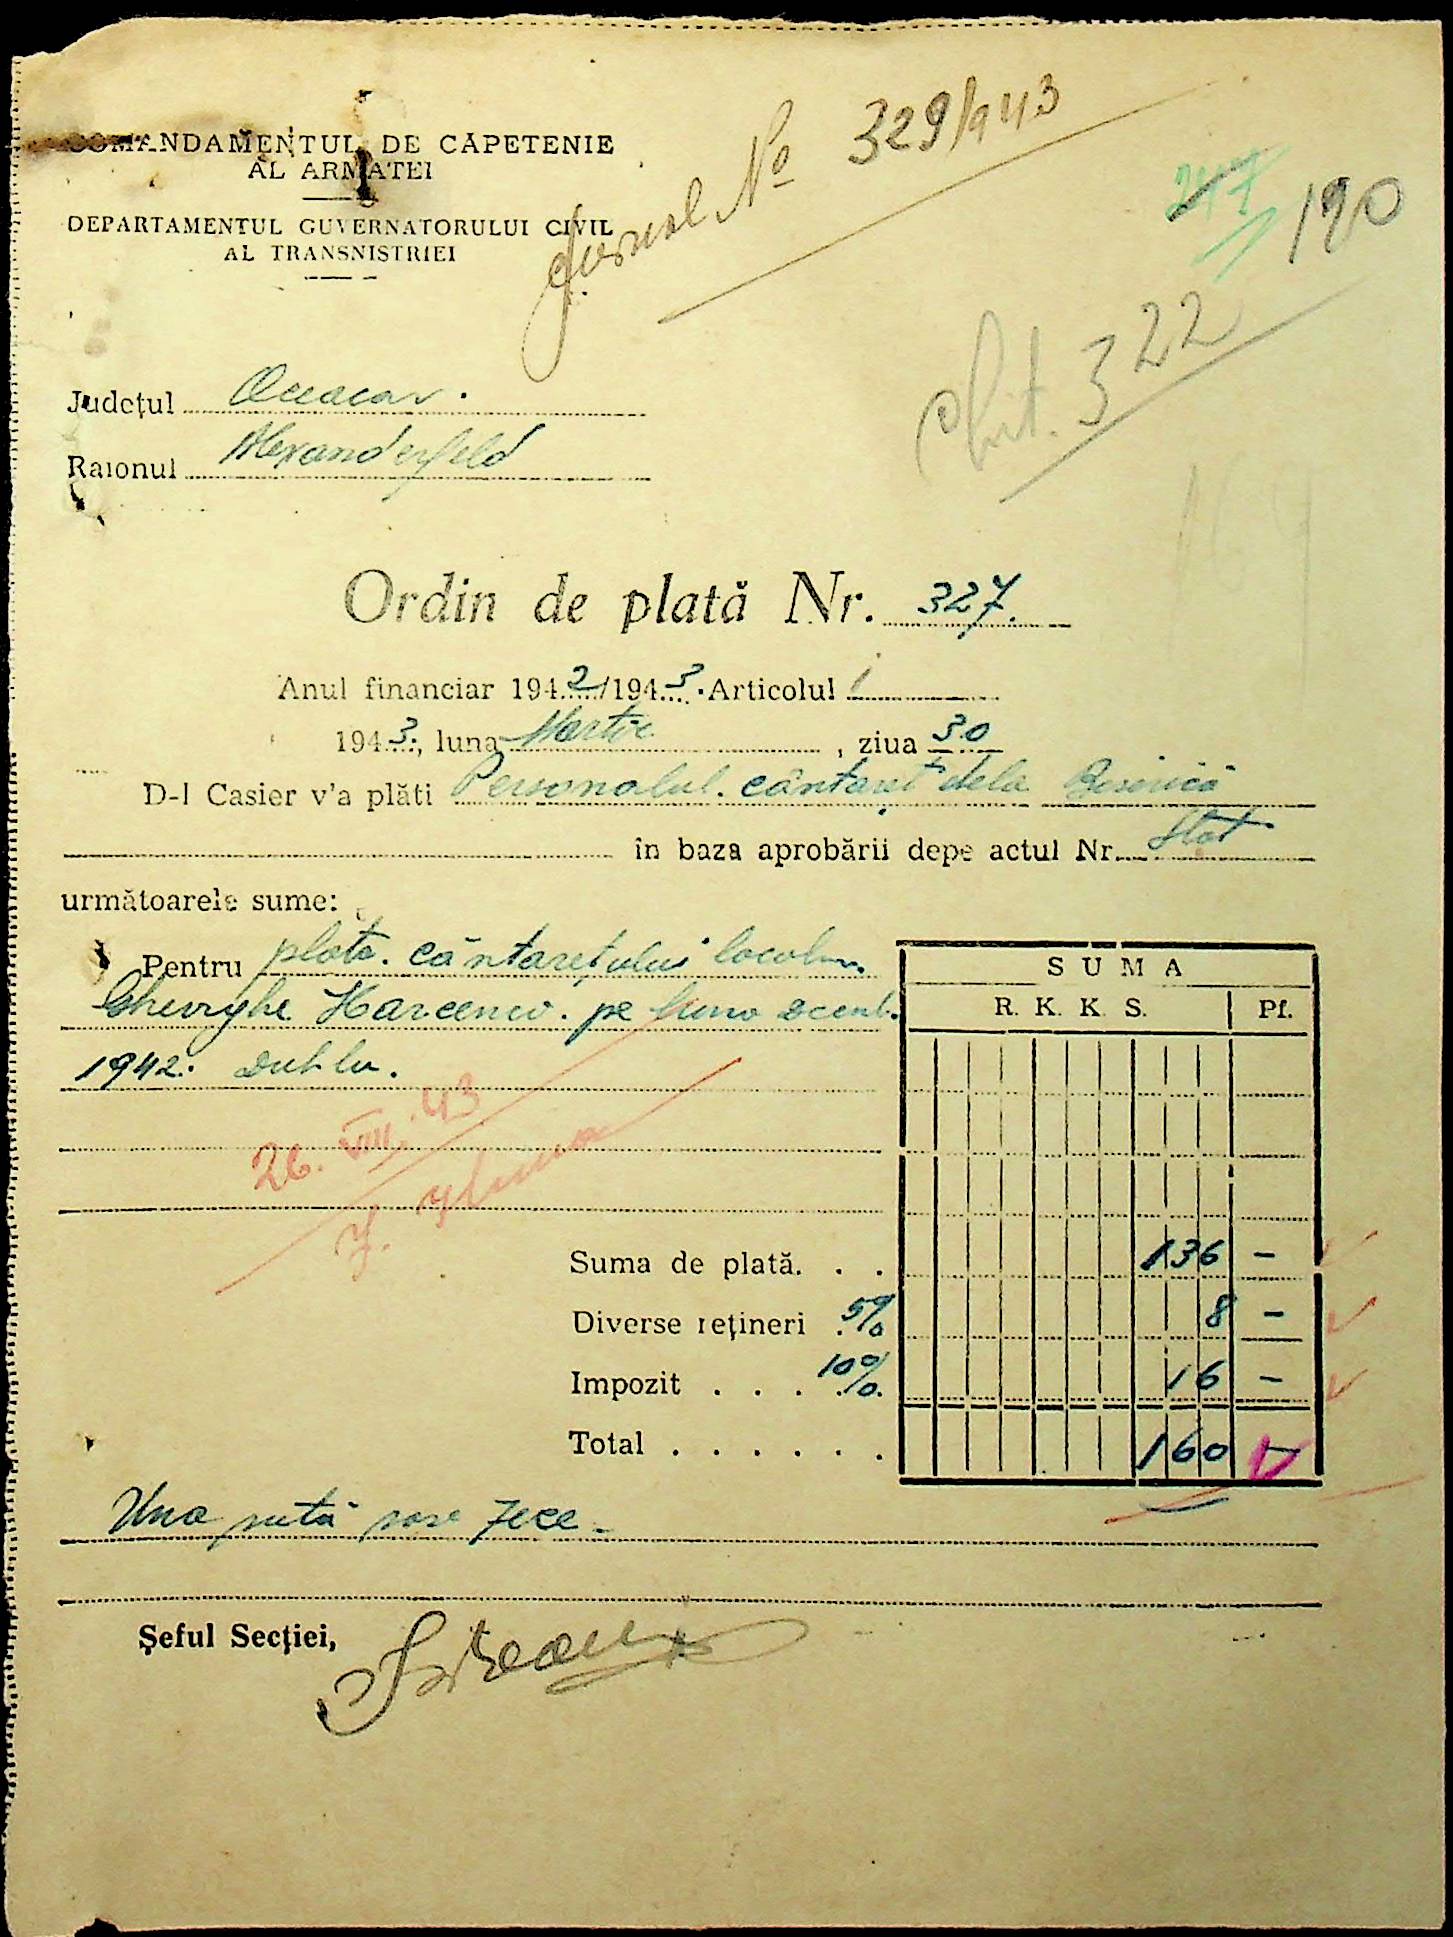 COMANDAMENTUL DE CAPETENIE
AL ARMATEI
DEPARTAMENTUL GUVERNATORULUI CIVIL
AL TRANSNISTRIEI
Jurnal No 329/943
247
190
Chit. 322
Județul Oceacov.
Raionul Alexanderfeld
Ordin de plată Nr. 327.
Anul financiar 1942/1943. Articolul 1
1943., luna Martie, ziua 30
D-l Casier v'a plăti Personalul. cântareț dela Biserică
în baza aprobării depe actul Nr. Stat
următoarele sume:
Pentru plata. cântarețului local
Gheorghe Harcenco. pe luna Decemb.
1942.
SUMA
R. K. K. S. Pf.
26. VIII. 43
Suma de plată. . . 136 –
Diverse rețineri 5% 8 –
Impozit . . . 10% 16 –
Total . . . . . . 160 –
Una sută șase zece –
Șeful Secției,